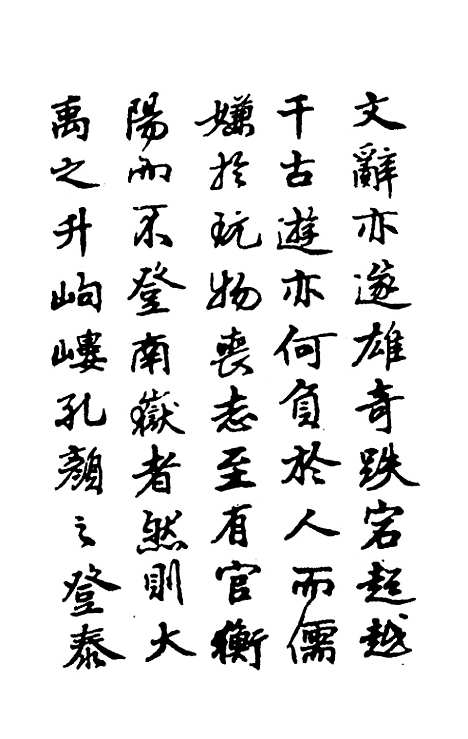 文辭亦遂雄奇跌宕超越
千古遊亦何負於人而儒
嫌於玩物喪志至有官衡
陽而不登南嶽者然則大
禹之升岣嶁孔顏之登泰